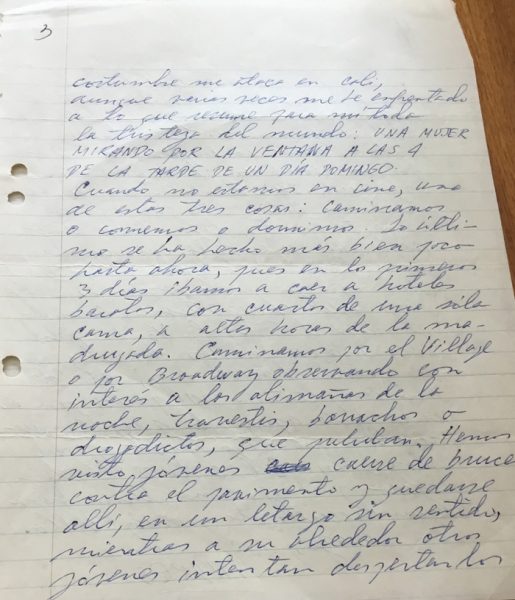 3
costumbre me ataca en Cali,
aunque varias veces me he enfrentado
a lo que resume para mí toda
la tristeza del mundo: UNA MUJER
MIRANDO POR LA VENTANA A LAS 4
DE LA TARDE DE UN DÍA DOMINGO.
Cuando no estamos en cine, una
de estas tres cosas: Caminamos
o comemos o dormimos. Lo últi-
mo se ha hecho más bien poco
hasta ahora, pues en los primeros
3 días íbamos a caer a hoteles
baratos, con cuartos de una sola
cama, a altas horas de la ma-
drugada. Caminamos por el Village
o por Broadway observando con
interés a las alimañas de la
noche, travestis, borrachos o
drogadictos, que pululan. Hemos
visto jóvenes caerse de bruces
contra el pavimento y quedarse
allí, en un letargo sin sentido,
mientras a su alrededor otros
jóvenes intentan despertarlos